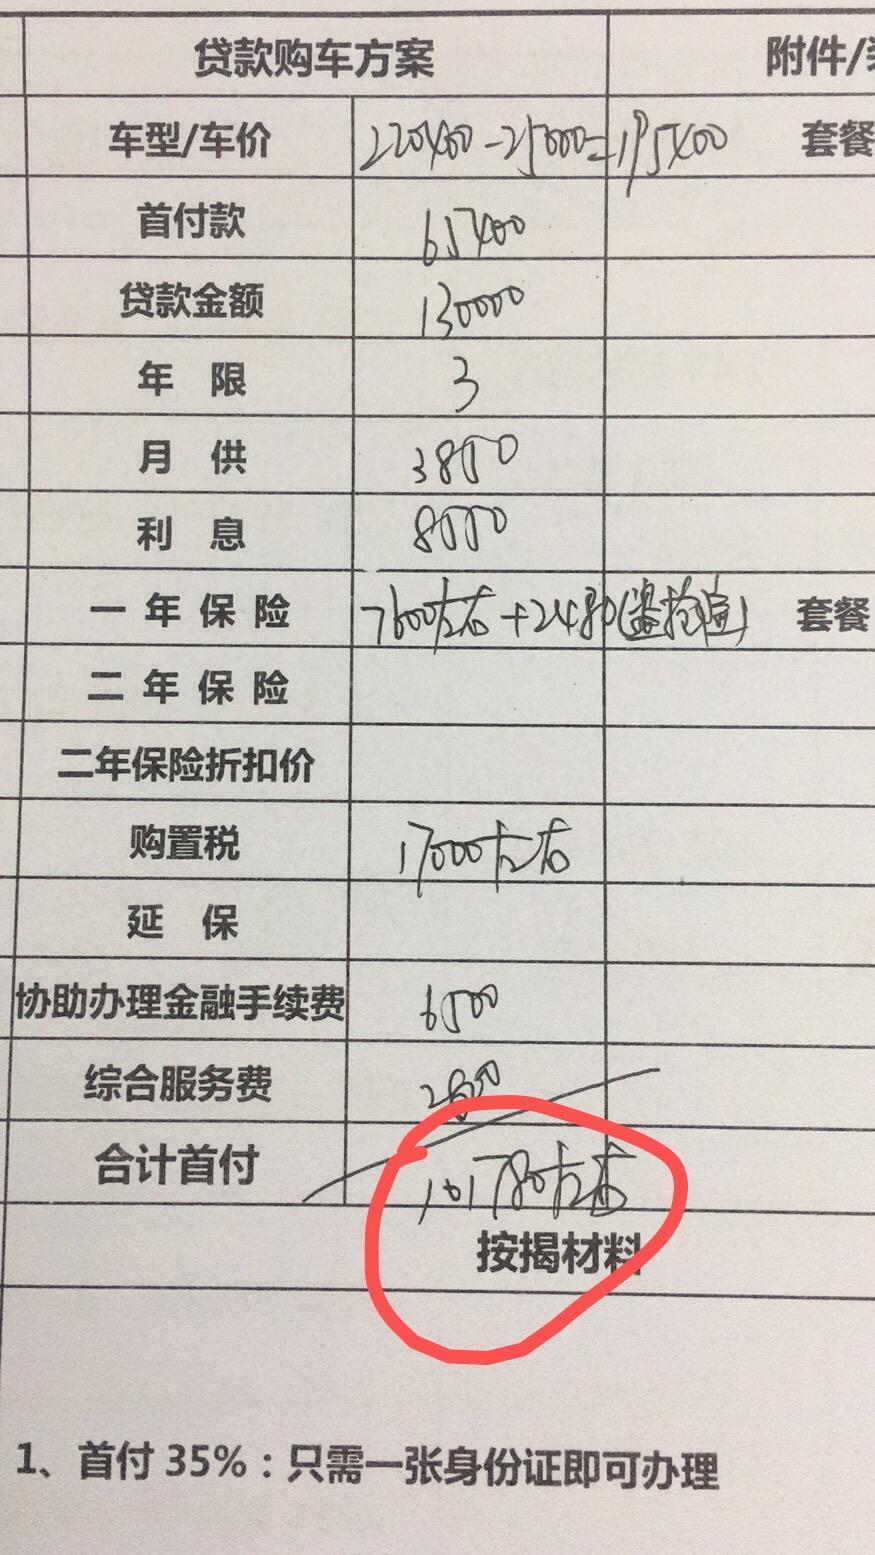 贷款购车方案 附件/
车型/车价 220400-25000=195400 套餐
首付款 65400
贷款金额 130000
年 限 3
月 供 3800
利 息 8000
一年保险 7600左右+2480(盗抢险) 套餐
二年保险
二年保险折扣价
购置税 17000左右
延 保
协助办理金融手续费 6500
综合服务费 2800
合计首付 101780左右
按揭材料
1、首付 35%：只需一张身份证即可办理